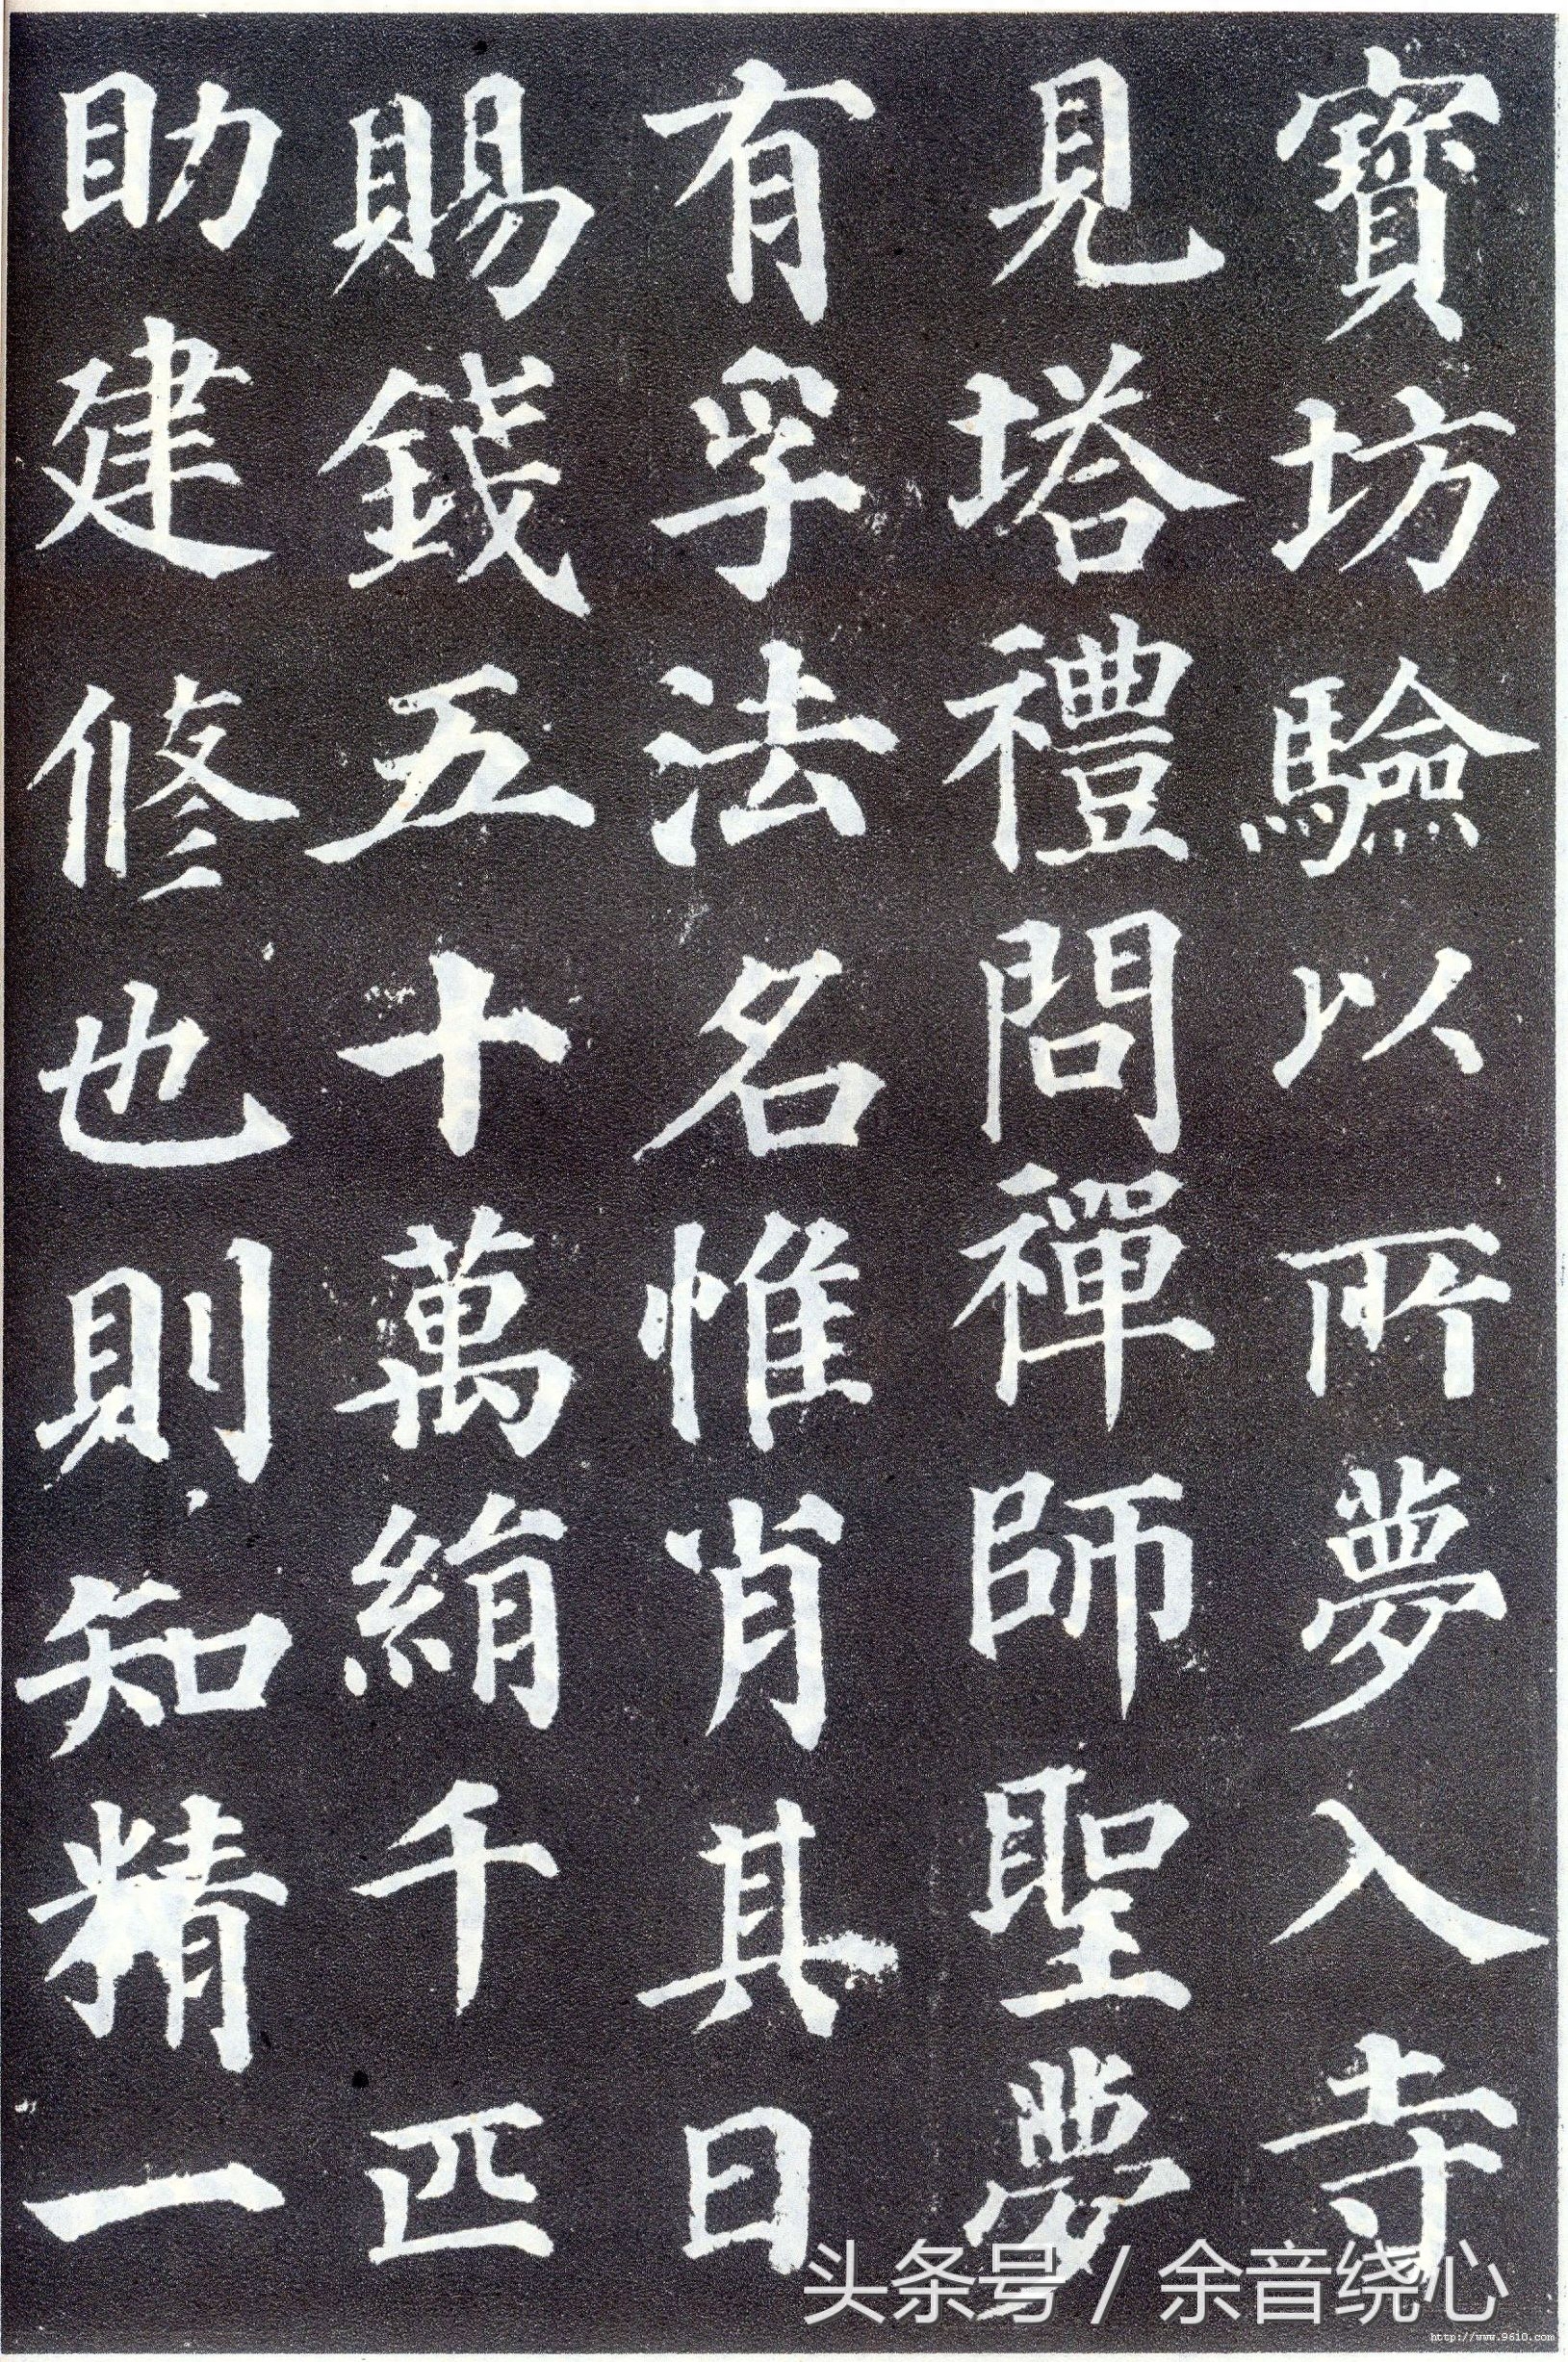 寶坊驗以所夢入寺
見塔禮問禪師聖夢
有孚法名惟肖其日
賜錢五十萬絹千匹
助建修也則知精一
头条号 / 余音绕心
http://www.9610.com